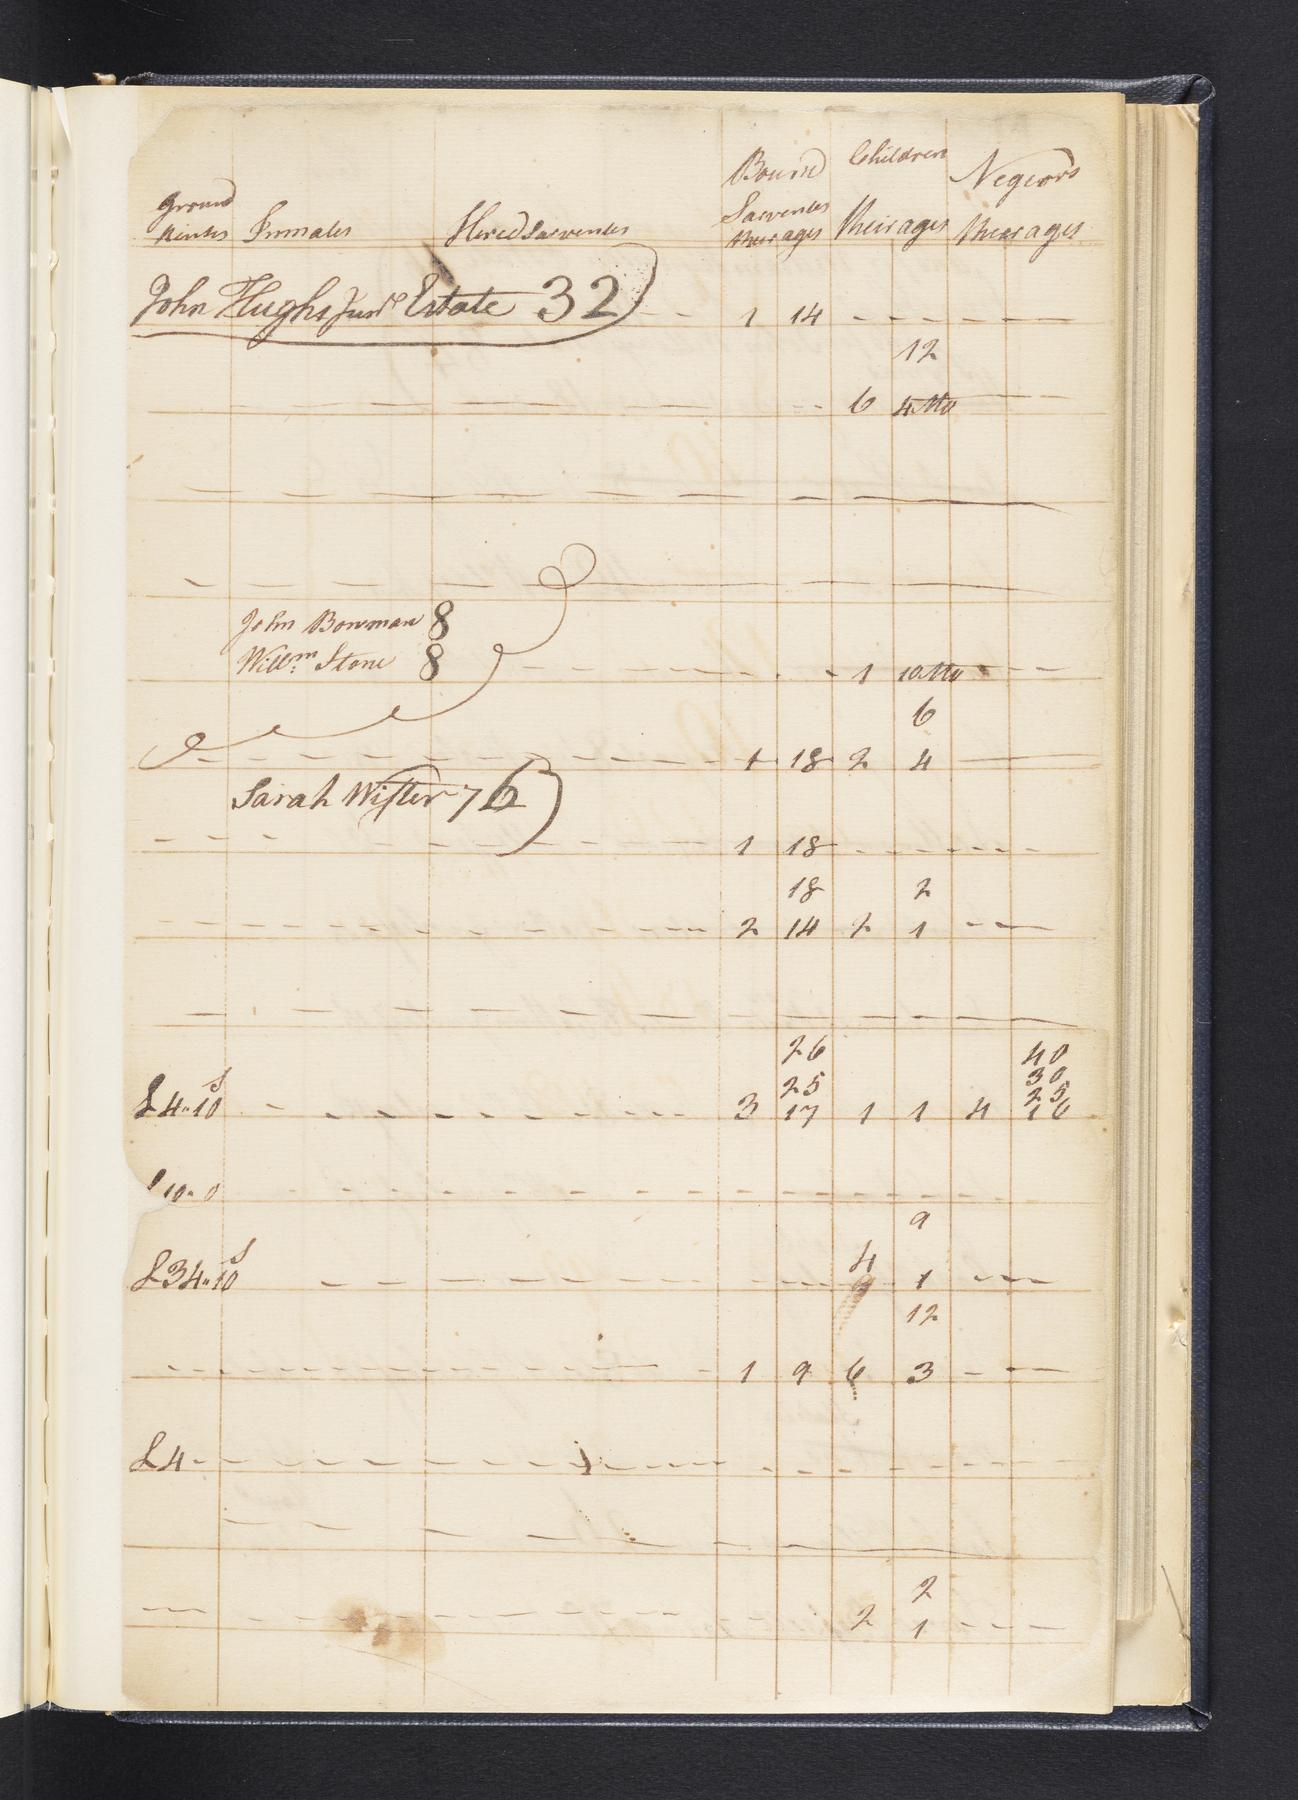 Ground Rents Inmates Hired Sarventes Bound Sarventes their ages Children their ages Negrors their ages
John Hughs Junr Estate 32 1 14
12
6 4 Mo
John Bowman 8
Willm Stone 8 1 10 Mo
6
1 18 2 4
Sarah Wister 76
1 18
18 2
2 14 2 1
26 40
25 30
25
£4"10 s 3 17 1 1 4 16
10" 0
9
£34"10 s 4 1
12
1 9 6 3
£4
2
2 1